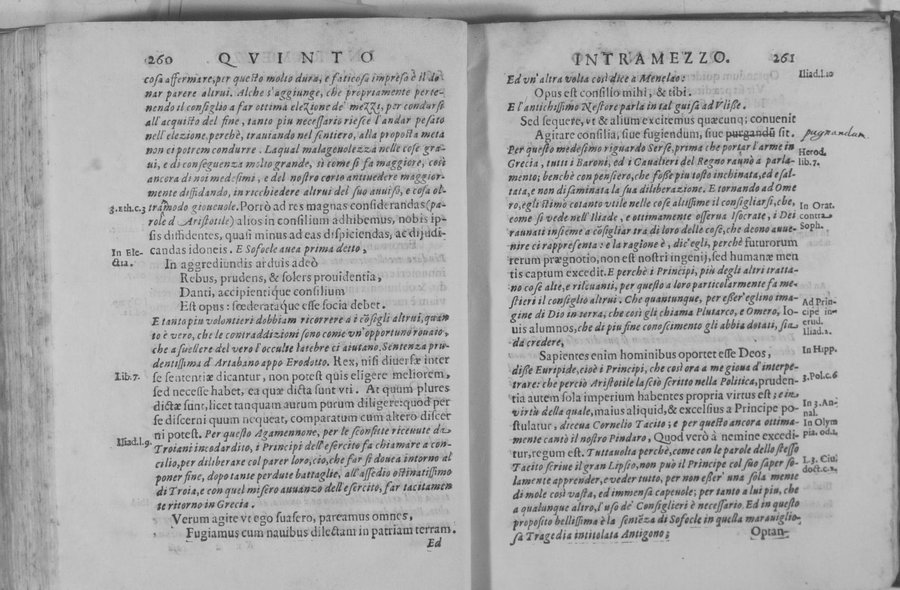 260 QVINTO
cosa affermare, per questo molto dura, e faticosa impresa è il donar
parere altrui. Alche s'aggiunge, che propriamente pertenendo
il consiglio a far ottima elezione de' mezzi, per condursi
all'acquisto del fine, tanto piu necessario riesce l'andar pesato
nell'elezione, perchè, traviando nel sentiero, alla proposta meta
non ci potrem condurre. Laqual malageuolezza nelle cose graui,
e di conseguenza molto grande, sì come si fa maggiore, così
ancora di noi medesimi, e del nostro corto antiuedere maggiormente
diffidando, in richiedere altrui del suo auuiso, e cosa oltramodo
gioueuole. Porrò ad res magnas considerandas (parole
d'Aristotile) alios in consilium adhibemus, nobis ipsis
diffidentes, quasi minus ad eas dispiciendas, ac dijudicandas
idoneis. E Sofocle auea prima detto,
3. Eth. c. 3
In Electra.
In aggrediundis arduis adeò
Rebus, prudens, & solers prouidentia,
Danti, accipientique consilium
Est opus: fœderataque esse socia debet.
E tanto piu volontieri dobbiam ricorrere a i cõsigli altrui, quanto
è vero, che le contraddizioni sono come vn'opportuno rouato,
che a suellere del vero l'occulte latebre ci aiutano. Sentenza prudentissima
d'Artabano appo Erodotto. Rex, nisi diuersæ inter
se sententiæ dicantur, non potest quis eligere meliorem,
sed necesse habet, ea quæ dicta sunt vti. At quum plures
dictæ sunt, licet tanquam aurum purum diligere: quod per
se discerni quum nequeat, comparatum cum altero discerni
potest. Per questo Agamennone, per le sconfitte riceuute da
Troiani incodardito, i Principi dell'esercito fa chiamare a concilio,
per diliberare col parer loro, ciò, che far si douea intorno al
poner fine, dopo tante perdute battaglie, all'assedio ostinatissimo
di Troia, e con quel misero auuanzo dell'esercito, far tacitamente
ritorno in Grecia.
Lib. 7.
Iliad. l. 9.
Verum agite vt ego suasero, pareamus omnes,
Fugiamus cum nauibus dilectam in patriam terram.
Ed
INTRAMEZZO. 261
Ed vn'altra volta così dice a Menelao:
Iliad. l. 10
Opus est consilio mihi, & tibi.
E l'antichissimo Nestore parla in tal guisa ad Vlisse.
Sed sequere, vt & alium excitemus quæcunq; conuenit
Agitare consilia, siue fugiendum, siue purgandũ sit.
pugnandum
Per questo medesimo riguardo Serse, prima che portar l'arme in
Grecia, tutti i Baroni, ed i Caualieri del Regno raunò a parlamento;
benchè con pensiero, che fosse piu tosto inchinata, ed esaltata,
e non disaminata la sua diliberazione. E tornando ad Omero,
egli stimò cotanto vtile nelle cose altissime il consigliarsi, che,
come si vede nell'Iliade, e ottimamente osserua Isocrate, i Dei
raunati insieme a cõsigliar tra di loro delle cose, che deono auuenire
ci rappresenta: e la ragione è, dic'egli, perchè futurorum
rerum prægnotio, non est nostri ingenij, sed humanæ mentis
captum excedit. E perchè i Principi, più degli altri trattano
cose alte, e rileuanti, per questo a loro particolarmente fa mestieri
il consiglio altrui. Che quantunque, per esser'eglino imagine
di Dio in terra, che così gli chiama Plutarco, e Omero, Iouis
alumnos, che di piu fine conoscimento gli abbia dotati, sia
da credere,
Herod.
lib. 7.
In Orat.
contra
Soph.
Ad Principe
inerud.
Iliad. 2.
Sapientes enim hominibus oportet esse Deos,
disse Euripide, cioè i Principi, che così ora a me gioua d'interpetrare:
che perciò Aristotile lasciò scritto nella Politica, prudentia
autem sola imperium habentes propria virtus est; e in
virtù della quale, maius aliquid, & excelsius a Principe postulatur,
diceua Cornelio Tacito; e per questo ancora ottimamente
cantò il nostro Pindaro, Quod verò à nemine exceditur,
regum est. Tuttauolta perchè, come con le parole dello stesso
Tacito scriue il gran Lipsio, non può il Principe col suo saper solamente
apprender, e veder tutto, per non esser' una sola mente
di mole così vasta, ed immensa capeuole; per tanto a lui piu, che
a qualunque altro, l'uso de' Consiglieri è necessario. Ed in questo
proposito bellissima è la sentẽza di Sofocle in quella marauigliosa
Tragedia intitolata Antigono;
In Hipp.
3. Pol. c. 6
In 3. Annal.
In Olympia.
od. 1.
L. 3. Ciui.
doct. c. 2.
Optan-